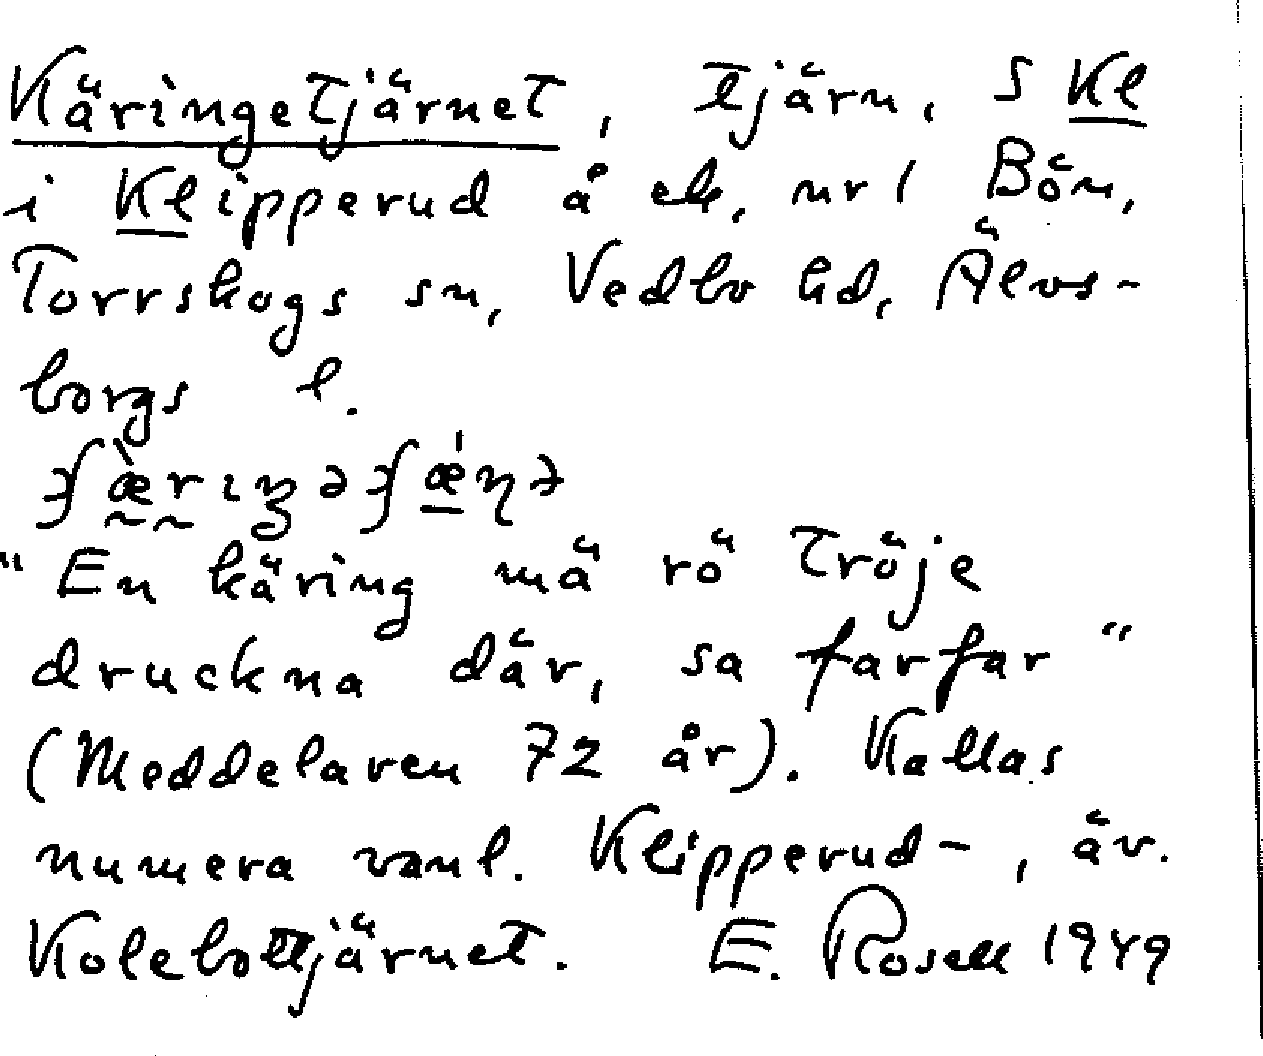 Käringetjärnet, tjärn, S Kl
i Klipperud å ek. nr 1 Bön,
Torrskogs sn, Vedbo hd, Älvs-
borgs l.
"En käring mä rö tröje
druckna där, sa farfar"
(Meddelaren 72 år). Kallas
numera vanl. Klipperud-, äv.
Kolebottjärnet. E. Rosell 1949